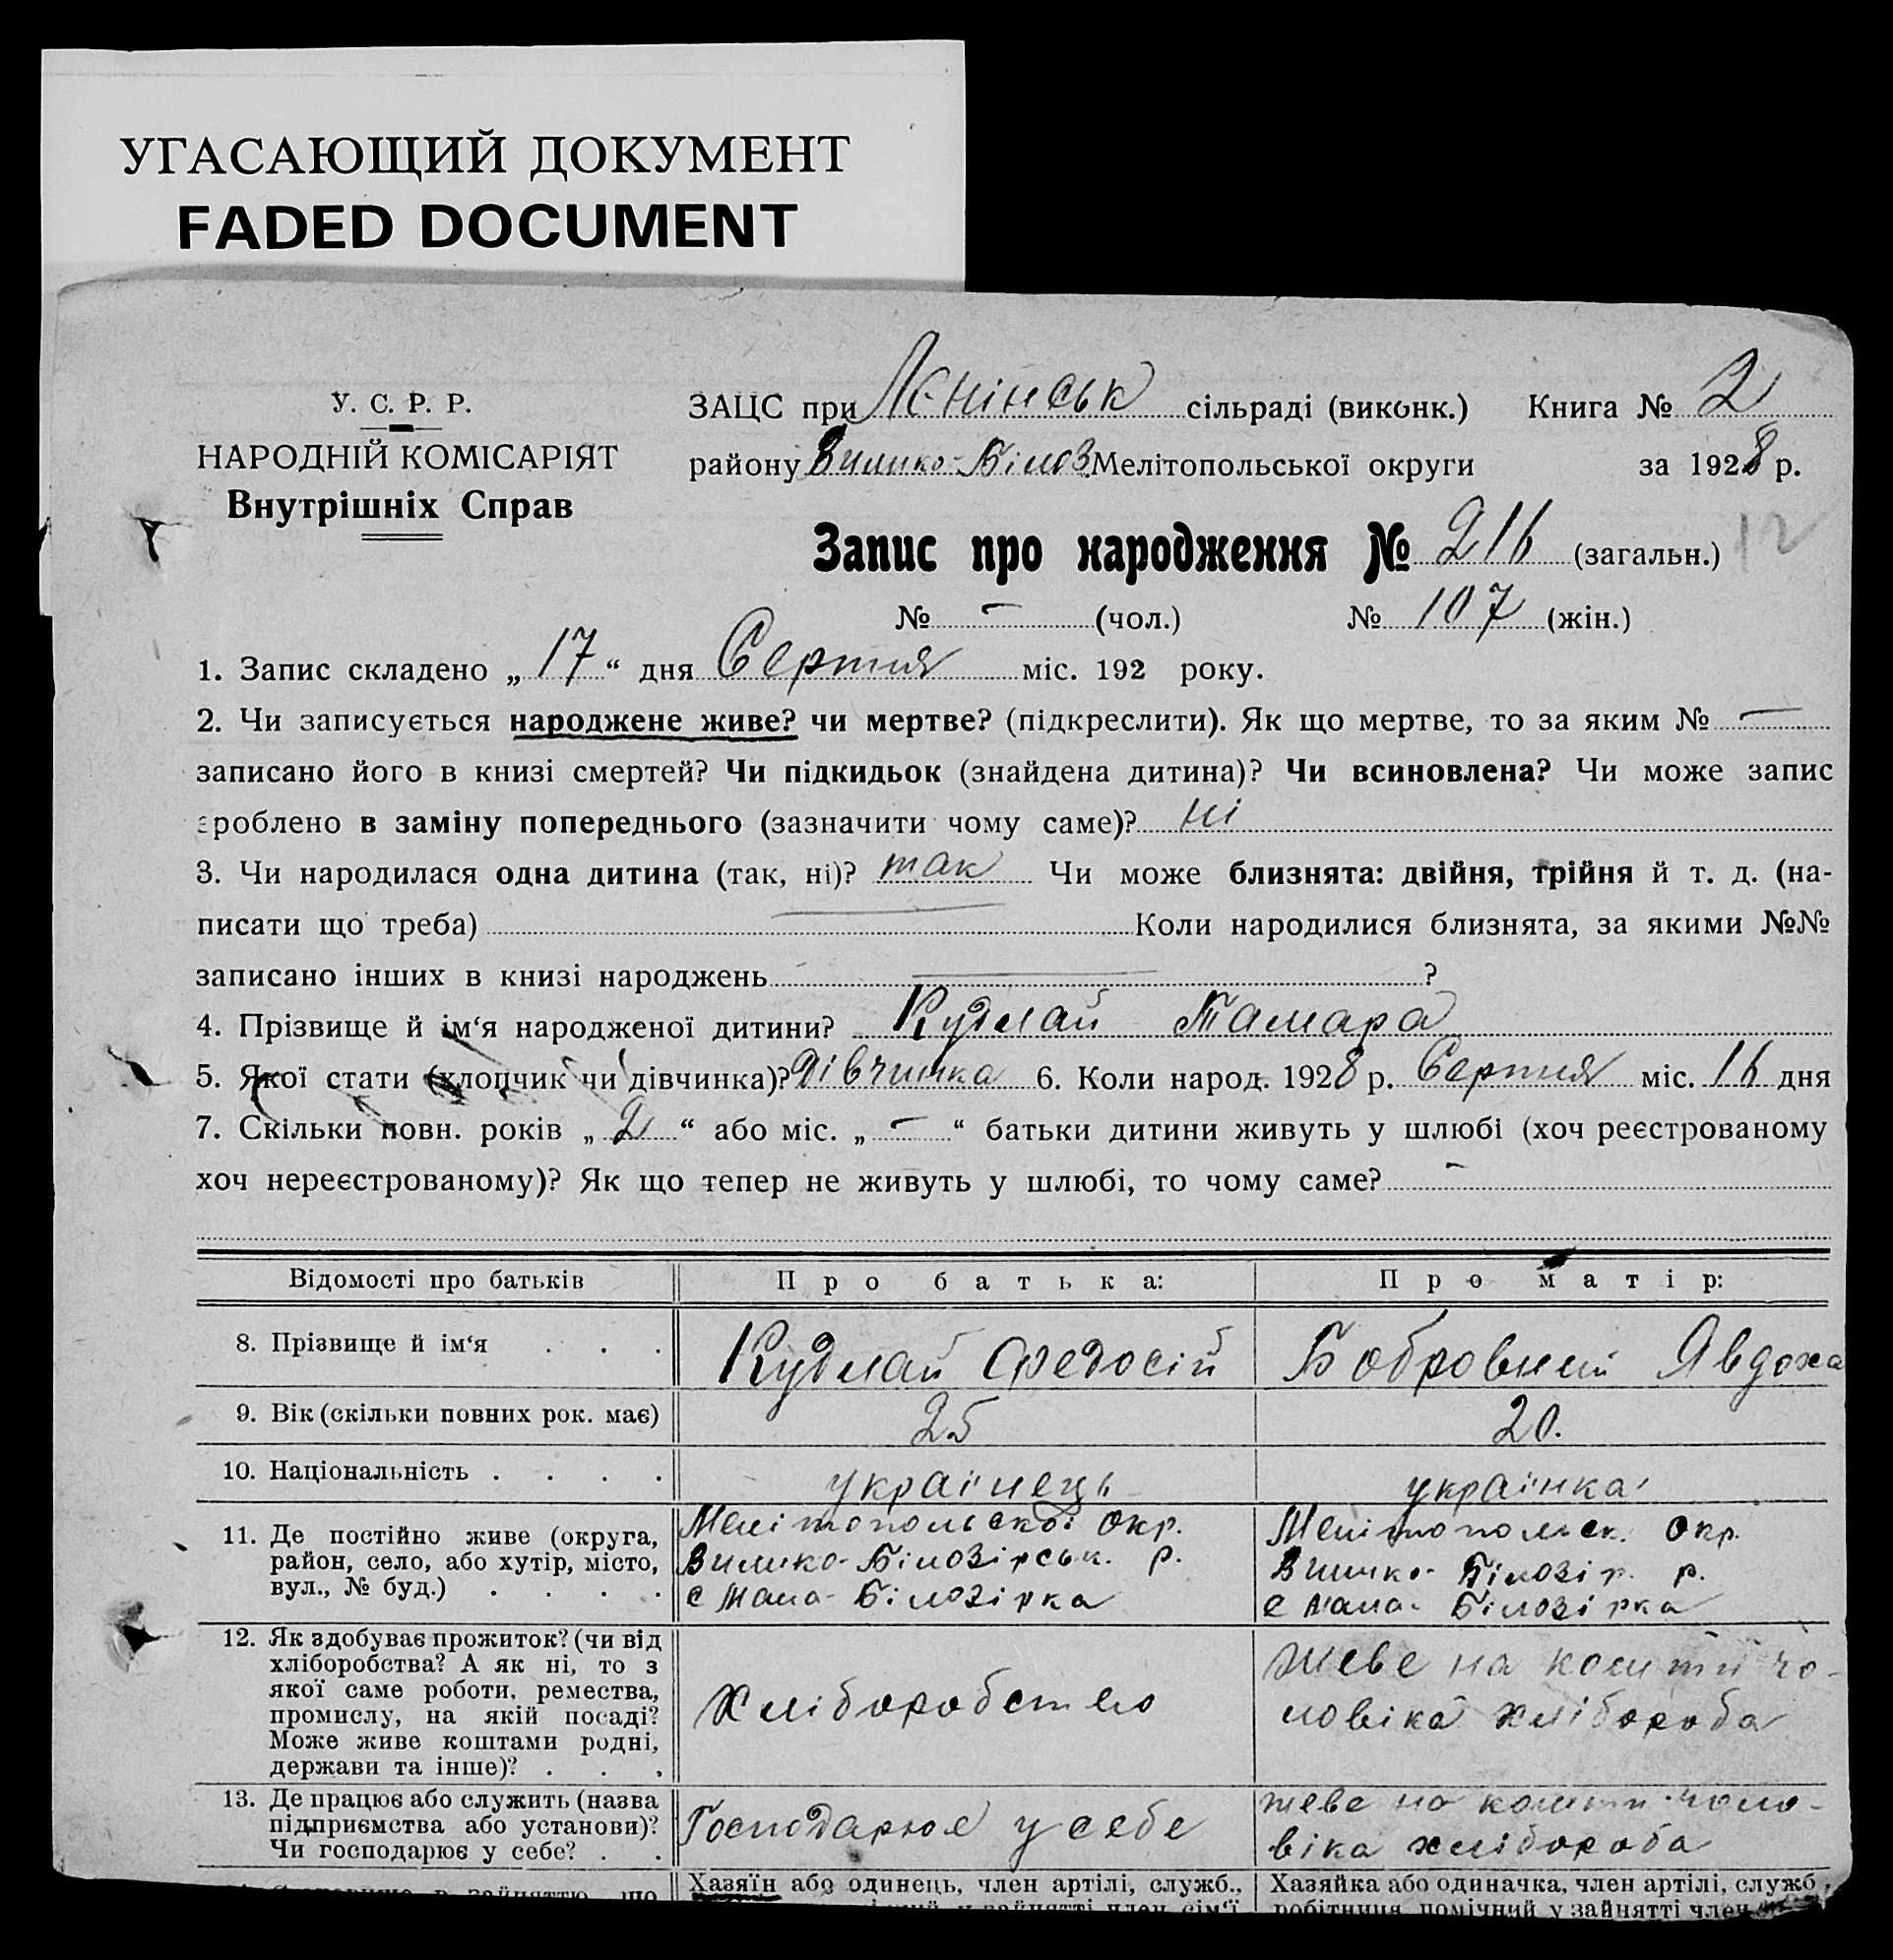 УГАСАЮЩИЙ ДОКУМЕНТ
FADED DOCUMENT
У. С. Р. Р.
НАРОДНІЙ КОМІСАРІЯТ
Внутрішніх Справ
ЗАЦС при Ленінськ сільраді (виконк.) Книга № 2
району Вилико-Білоз Мелітопольської округи за 1928 р.
Запис про народження № 216 (загальн.) 12
№ — (чол.) № 107 (жін.)
1. Запис складено „17“ дня Серпня міс. 192 року.
2. Чи записується народжене живе? чи мертве? (підкреслити). Як що мертве, то за яким № —
записано його в книзі смертей? Чи підкидьок (знайдена дитина)? Чи всиновлена? Чи може запис
зроблено в заміну попереднього (зазначити чому саме)? ні
3. Чи народилася одна дитина (так, ні)? так Чи може близнята: двійня, трійня й т. д. (на-
писати що треба) — Коли народилися близнята, за якими №№
записано інших в книзі народжень — ?
4. Прізвище й ім‘я народженої дитини? Кудлай Тамара
5. Якої стати (хлопчик чи дівчинка)? Дівчинка 6. Коли народ. 1928 р. Серпня міс. 16 дня
7. Скільки повн. років „2“ або міс. „—“ батьки дитини живуть у шлюбі (хоч реєстрованому
хоч нереєстрованому)? Як що тепер не живуть у шлюбі, то чому саме? —
Відомості про батьків Про батька: Про матір:
8. Прізвище й ім‘я . . . Кудлай Федосій Бобровний Явдоха
9. Вік (скільки повних рок. має) 25 20.
10. Національність . . . . українець українка
11. Де постійно живе (округа,
район, село, або хутір, місто,
вул., № буд.) . . . .
Мелітопольської окр.
Вилико-Білозірськ. р.
с Мала-Білозірка
Мелітопольск. окр.
Вилико-Білозір. р.
с Мала-Білозірка
12. Як здобуває прожиток? (чи від
хліборобства? А як ні, то з
якої саме роботи, ремества,
промислу, на якій посаді?
Може живе коштами родні,
держави та інше)? . . .
Хліборобство
живе на кошти чо-
ловіка хлібороба
13. Де працює або служить (назва
підприємства або установи)?
Чи господарює у себе? . .
Господарює у себе
живе на кошти чоло-
віка хлібороба
Хазяїн або одинець, член артілі, служб.,
Хазяйка або одиначка, член артілі, служб.,
робітниця, помічний у зайнятті член